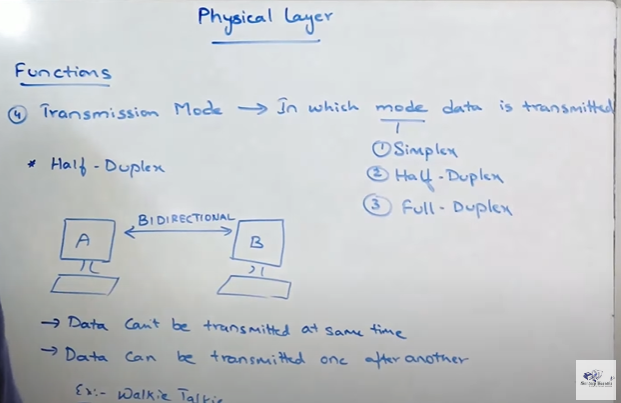 Physical Layer
Functions
④ Transmission Mode → In which mode data is transmitted
① Simplex
* Half-Duplex
② Half-Duplex
③ Full-Duplex
BIDIRECTIONAL
A
B
→ Data Can't be transmitted at same time
→ Data Can be transmitted one after another
Ex:- Walkie Talkie